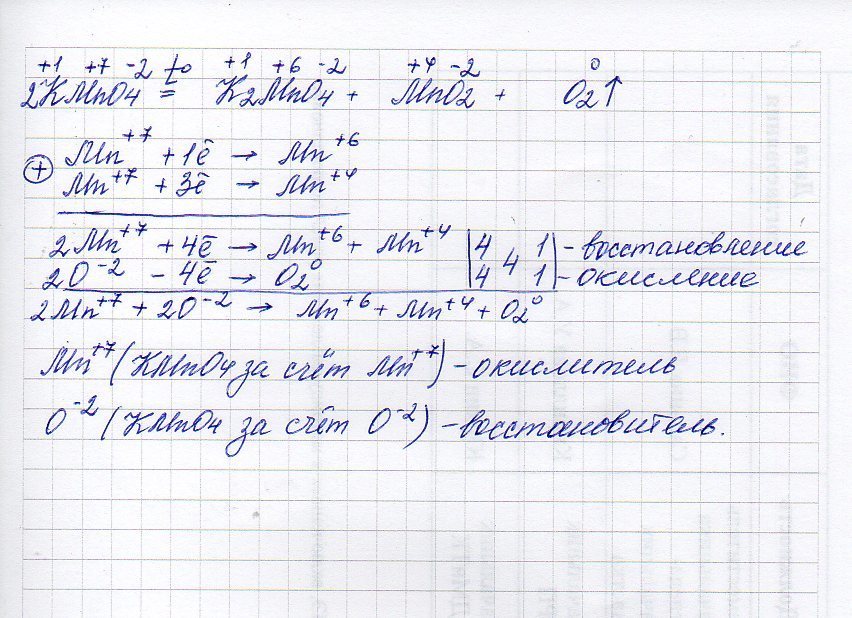 +1 +7 -2 t° +1 +6 -2 +4 -2 0
2KMnO4 = K2MnO4 + MnO2 + O2↑
Mn+7 + 1ē → Mn+6
+
Mn+7 + 3ē → Mn+4
2Mn+7 + 4ē → Mn+6 + Mn+4 | 4 4 1 | - восстановление
2O-2 - 4ē → O2 0 | 4 1 | - окисление
2Mn+7 + 2O-2 → Mn+6 + Mn+4 + O2 0
Mn+7 (KMnO4 за счёт Mn+7) - окислитель
O-2 (KMnO4 за счёт O-2) - восстановитель.